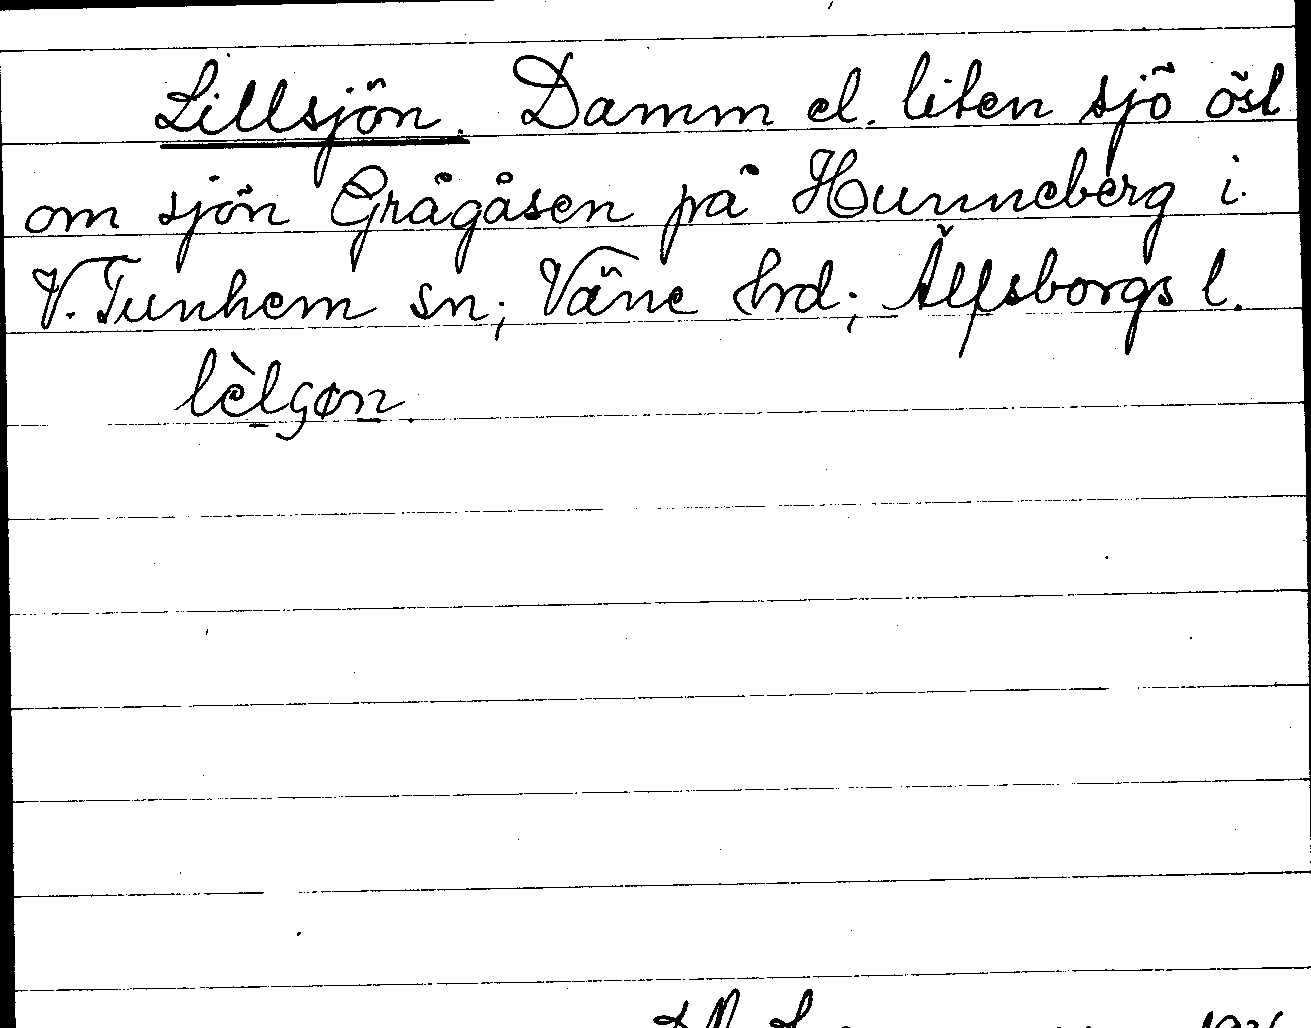 Lillsjön. Damm el. liten sjö öst
om sjön Grågåsen på Hunneberg i
V. Tunhem sn; Väne hrd; Älfsborgs l.
lèlgøn.